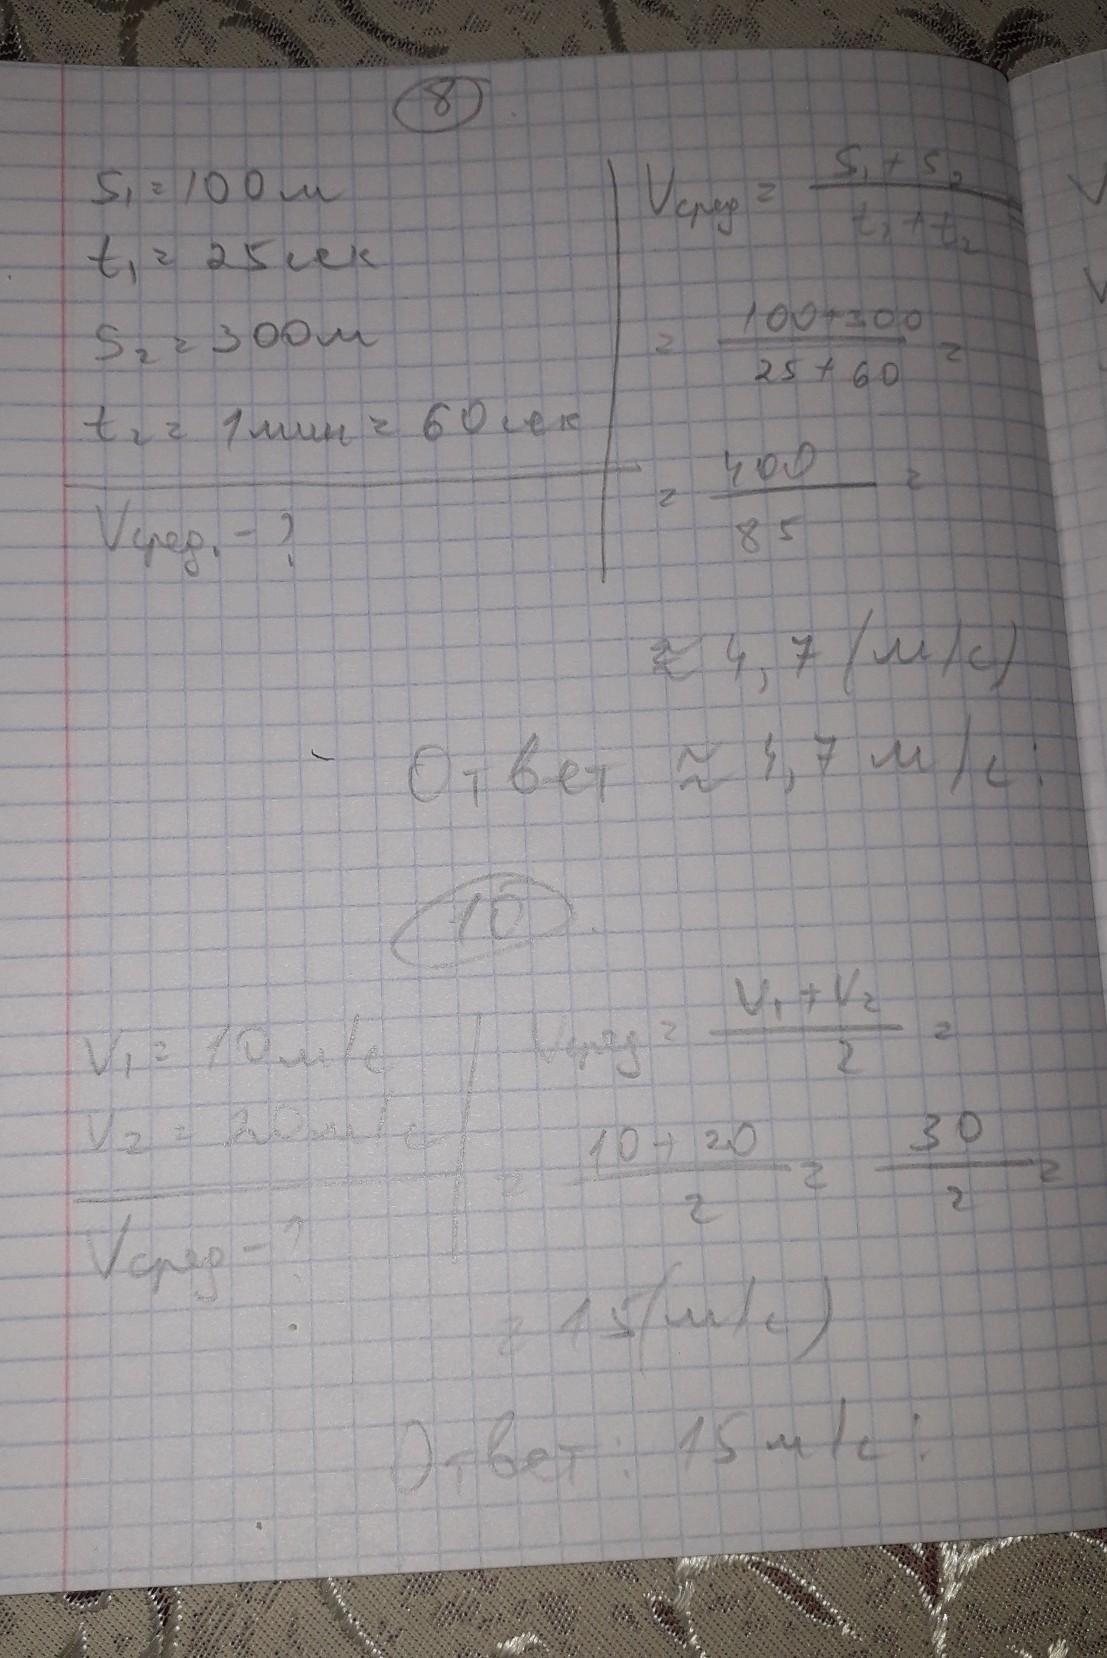 8
S₁ = 100м
t₁ = 25сек
S₂ = 300м
t₂ = 1мин = 60сек
Vсред. - ?
Vсред = (S₁ + S₂)/(t₁ + t₂)
= (100+300)/(25+60) =
= 400/85 =
≈ 4,7 (м/с)
Ответ ≈ 4,7 м/с.
10
V₁ = 10м/с
V₂ = 20м/с
Vсред - ?
Vсред = (V₁ + V₂)/2 =
= (10 + 20)/2 = 30/2 =
= 15(м/с)
Ответ: 15 м/с.